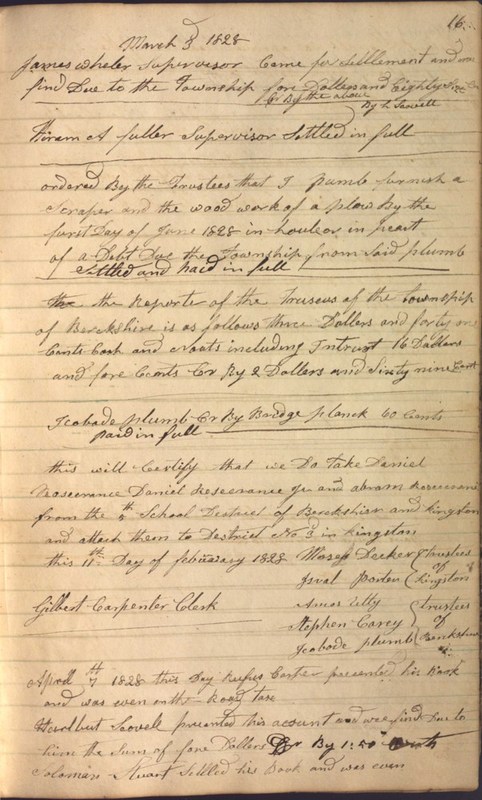 16
March 3 1828
James Wheler Supervisor Came for Settlement and we
find Due to the Township fore Dollers and Eighty
Cr By the above
By h Sowell
Hiram A fuller Supervisor Settled in full
ordered By the Trustees that I plumb furnish a
Scraper and the wood work of a plow By the
furst Day of June 1828 in part
of a Debt Due the Township from Said plumb
Settled and paid in full
the Reporter of the Trusees of the township
of Berckshire is as follows three Dollars and forty one
Cents Cash and Noats including Intrust 16 Dollars
and fore Cents Cr By 2 Dollars and Sixty nine Cents
Icobade plumb Cr By Bridge planck 60 Cents
paid in full
this will Certify that we Do Take Daniel
Roseerance Daniel Roseerance Jr and abram Roseerance
from the School District of Berckshier and kingston
and attach them to District No 3 in kingston
this 11th Day of febuuary 1828 Moses Decker trustees
of
Isral Porten kingston
Gilbert Carpenter Clerk
Amos Utly trustees
Stephen Carey of
Icobade plumb Berckshire
April th 7 1828 this Day Rufus Carter presented his Book
and was even on the Road taxe
Hurlbut Sowell presented this account and wee find Due to
him the Sum of fore Dollers Cr By 1:50
Soloman Stuart Settled his Book and was even